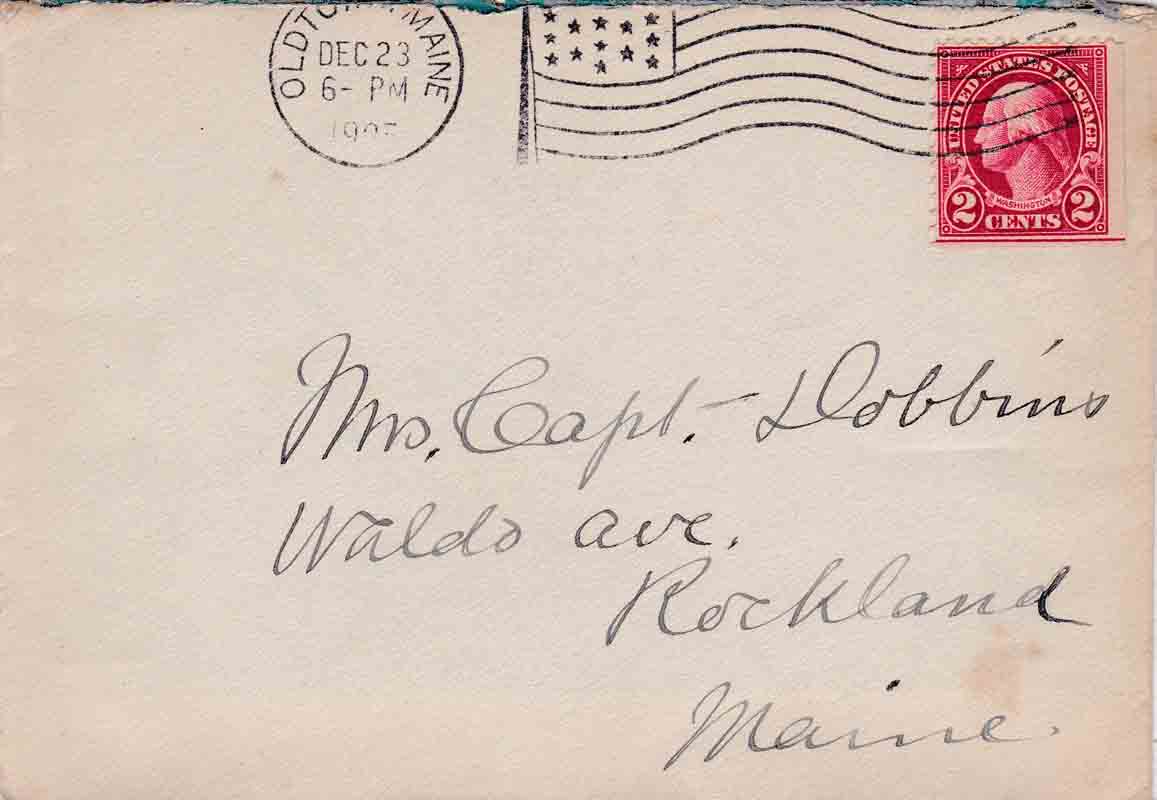 OLDTOWN, MAINE
DEC 23
6- PM
UNITED STATES POSTAGE
WASHINGTON
2 CENTS 2
Mrs. Capt. Dobbins
Waldo ave.
Rockland
Maine.